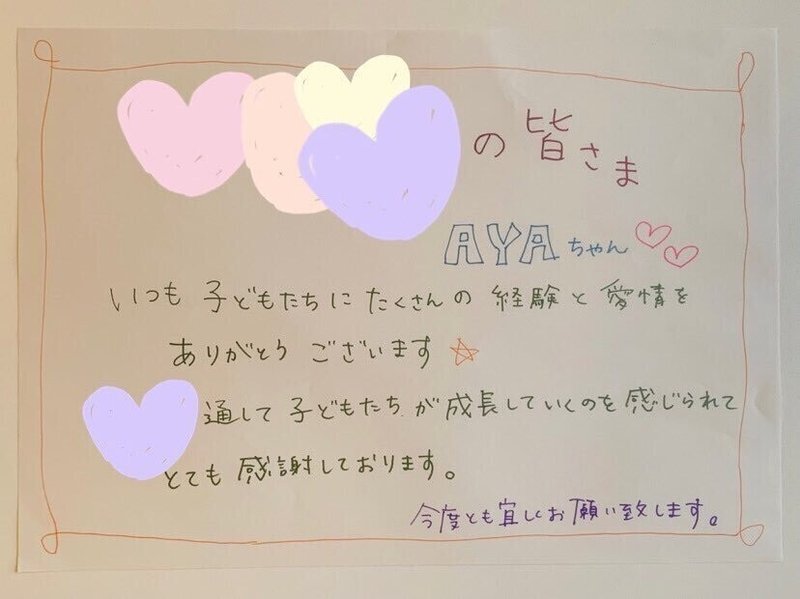 の皆さま
AYAちゃん
いつも子どもたちにたくさんの経験と愛情を
ありがとうございます
通して子どもたちが成長していくのを感じられて
とても感謝しております。
今度とも宜しくお願い致します。